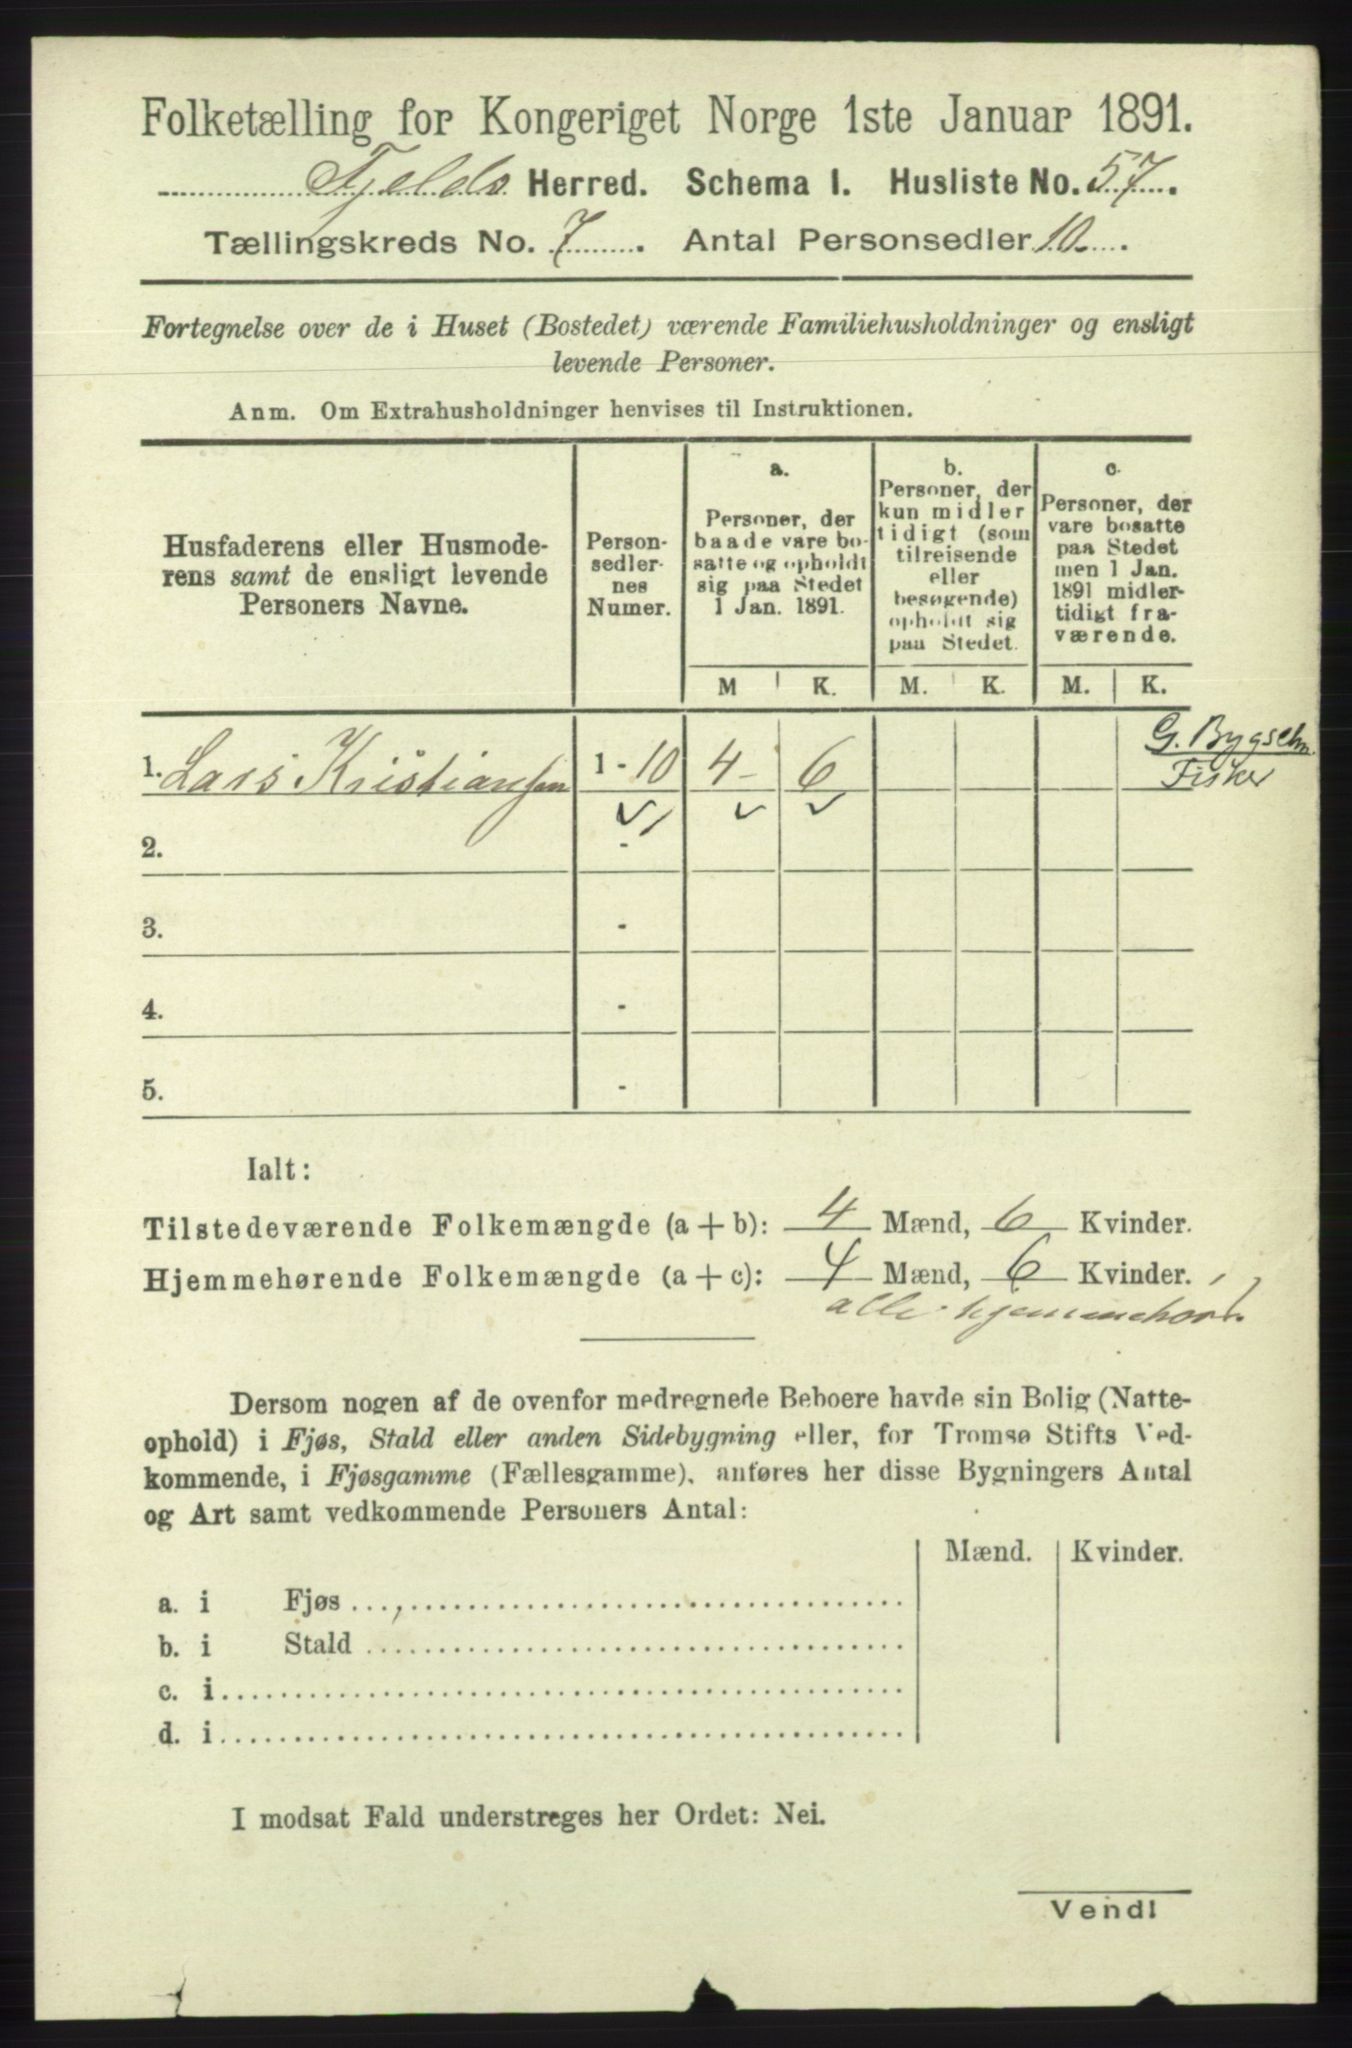 Folketælling for Kongeriget Norge 1ste Januar 1891.
Fjelds Herred. Schema I. Husliste No. 57.
Tællingskreds No. 7. Antal Personsedler 10.
Fortegnelse over de i Huset (Bostedet) værende Familiehusholdninger og ensligt
levende Personer.
Anm. Om Extrahusholdninger henvises til Instruktionen.
Husfaderens eller Husmode-
rens samt de ensligt levende
Personers Navne.
Person-
sedler-
nes
Numer.
a.
Personer, der
baade vare bo-
satte og opholdt
sig paa Stedet
1 Jan. 1891.
b.
Personer, der
kun midler
tidigt (som
tilreisende
eller
besøgende)
opholdt sig
paa Stedet.
c.
Personer, der
vare bosatte
paa Stedet
men 1 Jan.
1891 midler-
tidigt fra-
værende.
M K. M. K. M. K.
G. Bygselm.
Fisker
1. Lars Kristiansen 1 - 10 4 - 6
2. -
3. -
4. -
5. -
Ialt:
Tilstedeværende Folkemængde (a + b): 4 Mænd, 6 Kvinder.
Hjemmehørende Folkemængde (a + c): 4 Mænd, 6 Kvinder.
alle hjemmehør.
Dersom nogen af de ovenfor medregnede Beboere havde sin Bolig (Natte-
ophold) i Fjøs, Stald eller anden Sidebygning eller, for Tromsø Stifts Ved-
kommende, i Fjøsgamme (Fællesgamme), anføres her disse Bygningers Antal
og Art samt vedkommende Personers Antal:
Mænd. Kvinder.
a. i Fjøs
b. i Stald
c. i
d. i
I modsat Fald understreges her Ordet: Nei.
Vend!